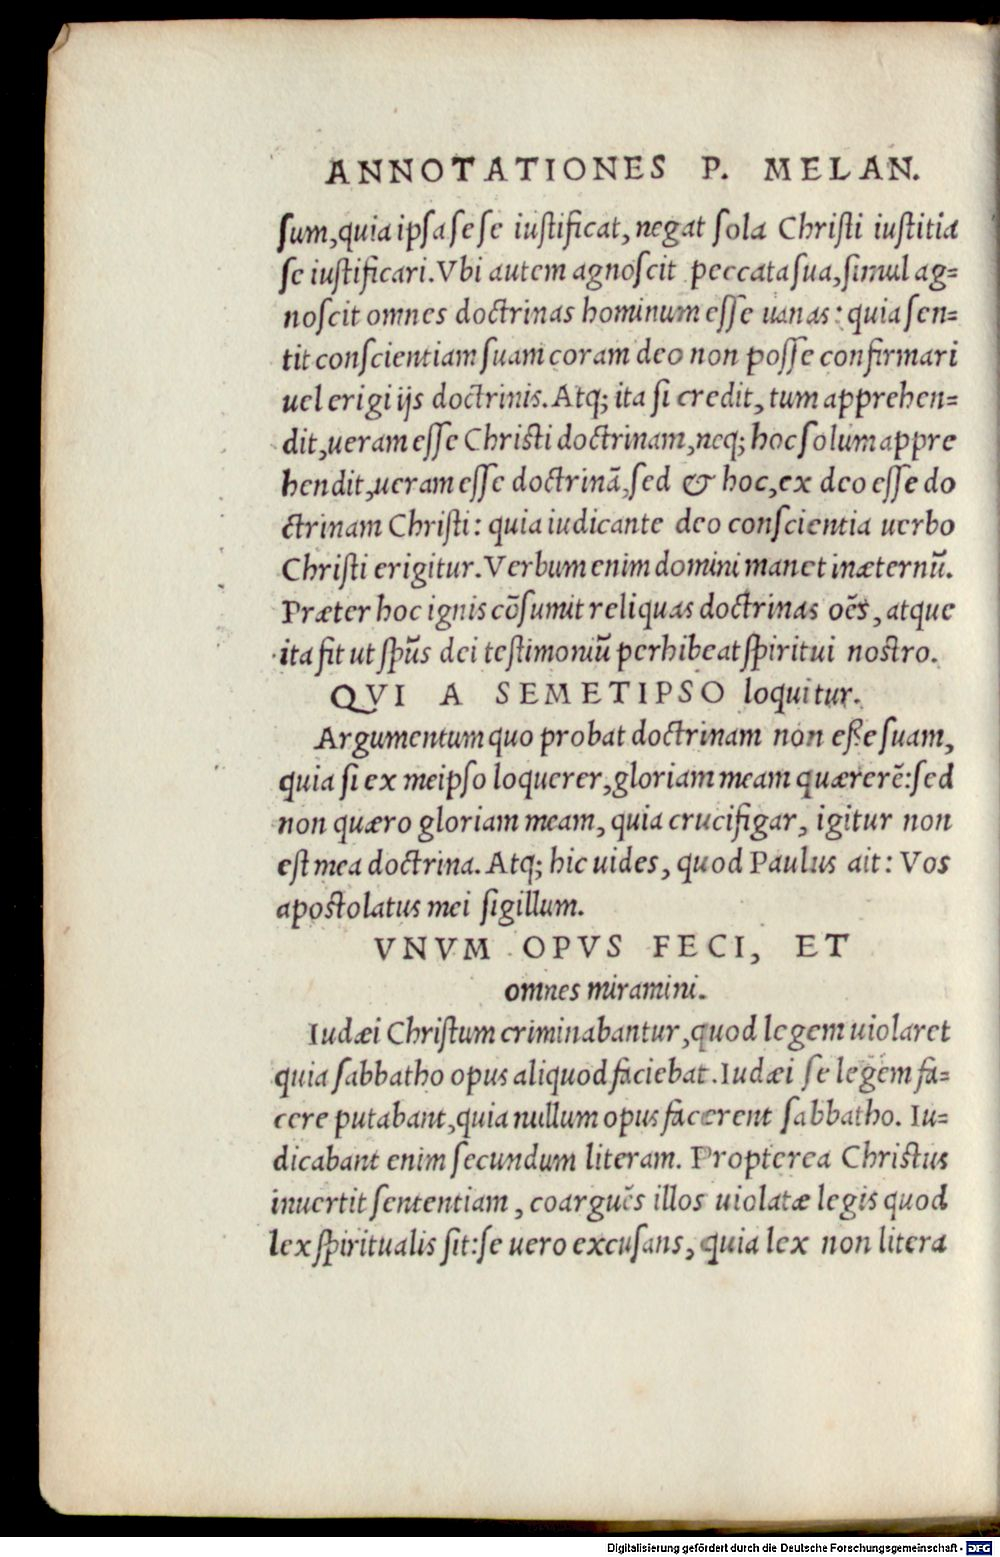 ANNOTATIONES P. MELAN.
sum, quia ipsa sese iustificat, negat sola Christi iustitia
se iustificari. Vbi autem agnoscit peccata sua, simul ag=
noscit omnes doctrinas hominum esse uanas: quia sen=
tit conscientiam suam coram deo non posse confirmari
uel erigi ijs doctrinis. Atq; ita si credit, tum apprehen=
dit, ueram esse Christi doctrinam, neq; hoc solum appre
hendit, ueram esse doctrinã, sed & hoc, ex deo esse do
ctrinam Christi: quia iudicante deo conscientia uerbo
Christi erigitur. Verbum enim domini manet inæternũ.
Præter hoc ignis cõsumit reliquas doctrinas oẽs, atque
ita fit ut spũs dei testimoniũ perhibeat spiritui nostro.
QVI A SEMETIPSO loquitur.
Argumentum quo probat doctrinam non esse suam,
quia si ex meipso loquerer, gloriam meam quærerẽ: sed
non quæro gloriam meam, quia crucifigar, igitur non
est mea doctrina. Atq; hic uides, quod Paulus ait: Vos
apostolatus mei sigillum.
VNVM OPVS FECI, ET
omnes miramini.
Iudæi Christum criminabantur, quod legem uiolaret
quia sabbatho opus aliquod faciebat. Iudæi se legem fa=
cere putabant, quia nullum opus facerent sabbatho. Iu=
dicabant enim secundum literam. Propterea Christus
inuertit sententiam, coarguẽs illos uiolatæ legis quod
lex spiritualis sit: se uero excusans, quia lex non litera
Digitalisierung gefördert durch die Deutsche Forschungsgemeinschaft - DFG